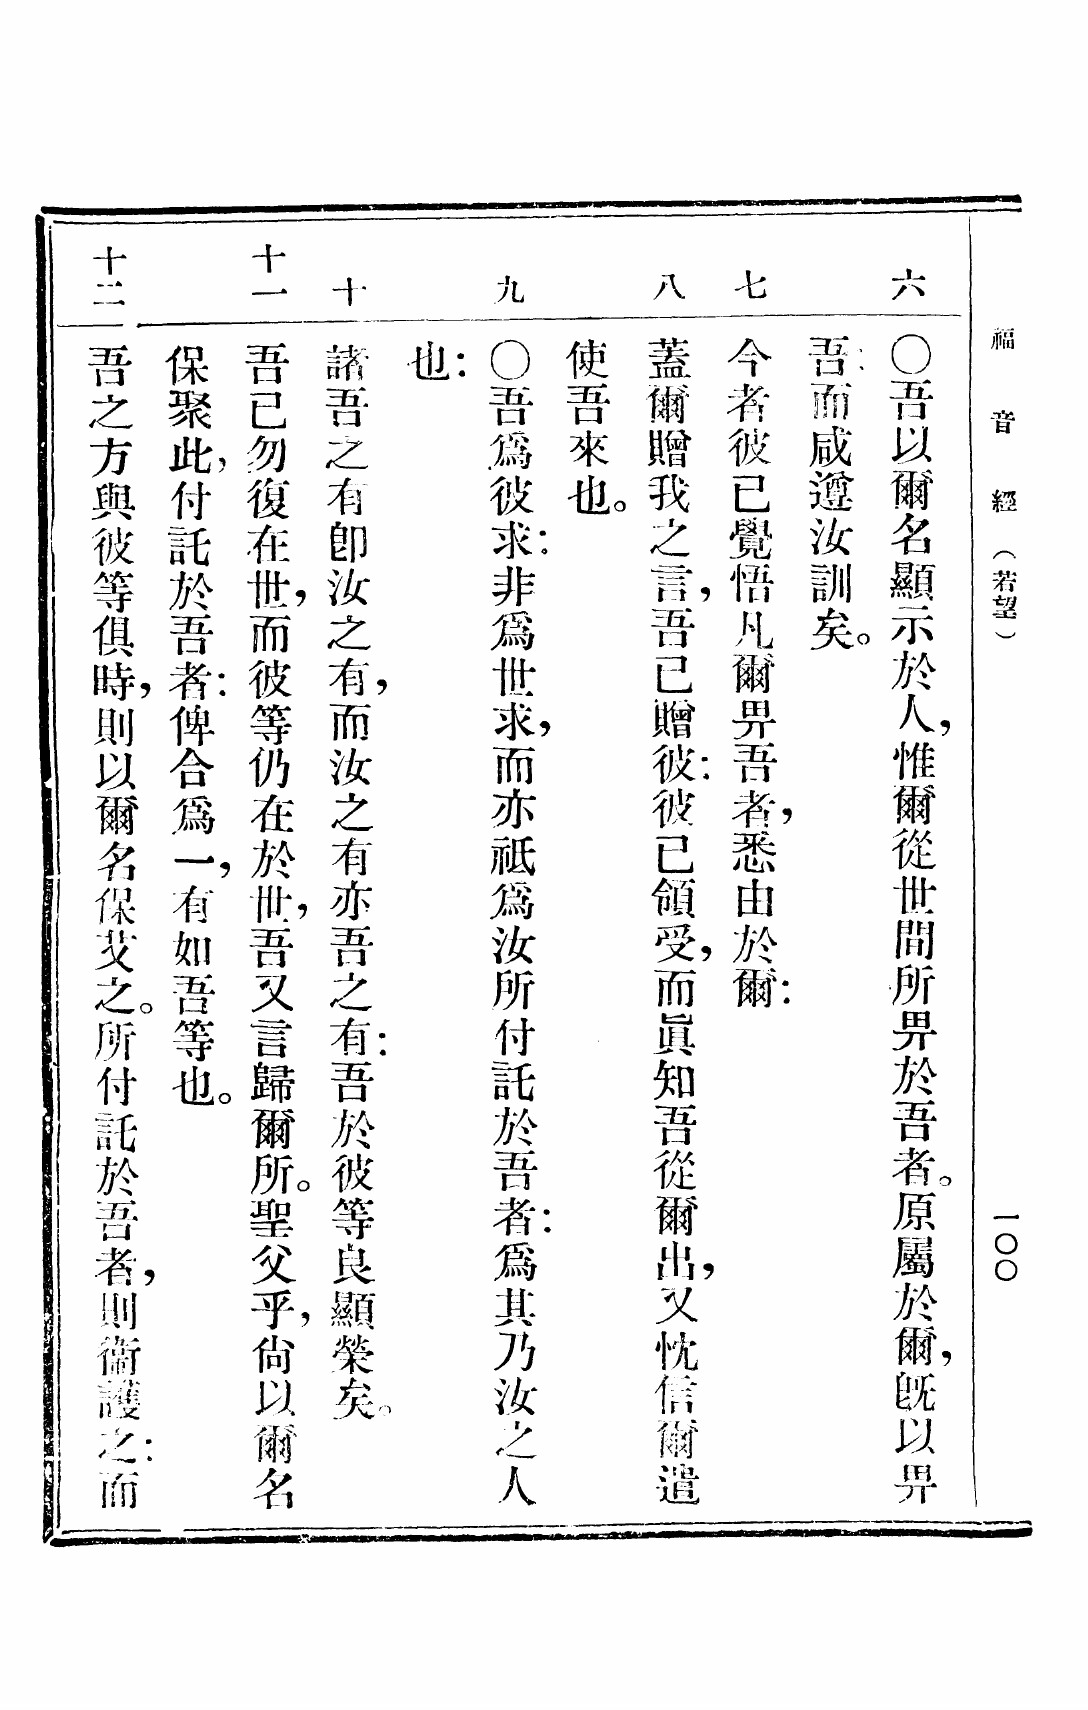 福音經（若望）
一〇〇
六
〇吾以爾名顯示於人，惟爾從世間所畀於吾者。原屬於爾，旣以畀
吾：而咸遵汝訓矣。
七
今者彼已覺悟凡爾畀吾者，悉由於爾：
八
蓋爾贈我之言，吾已贈彼：彼已領受，而眞知吾從爾出，又忱信爾遣
使吾來也。
九
〇吾爲彼求：非爲世求，而亦祗爲汝所付託於吾者：爲其乃汝之人
也：
十
諸吾之有卽汝之有，而汝之有亦吾之有：吾於彼等良顯榮矣。
十一
吾已勿復在世，而彼等仍在於世，吾又言歸爾所。聖父乎，尙以爾名
保聚此，付託於吾者：俾合爲一，有如吾等也。
十二
吾之方與彼等俱時，則以爾名保艾之。所付託於吾者，則衞護之：而